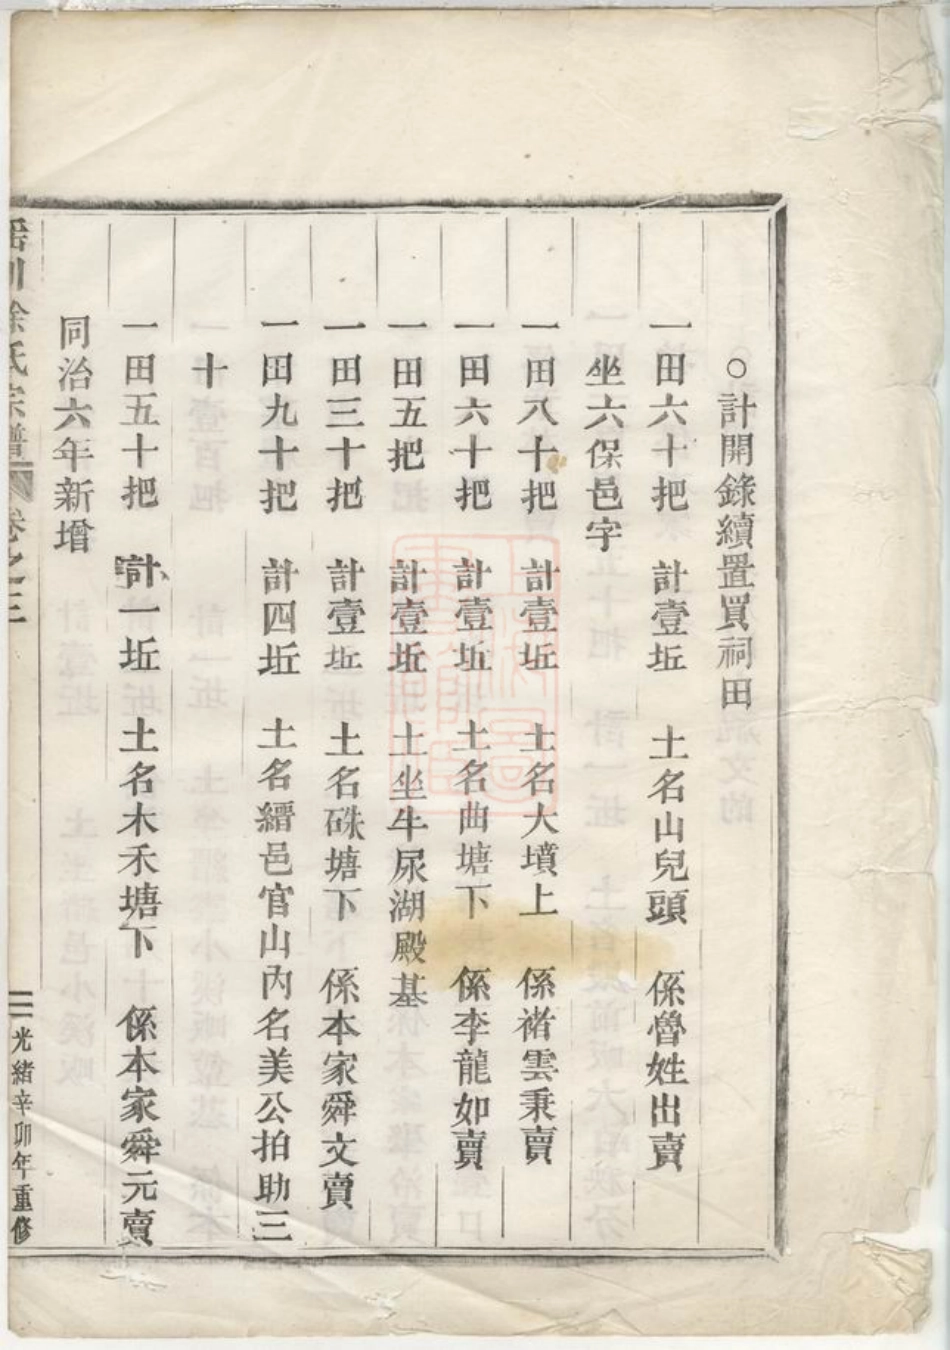 ○計開錄續置買祠田
一田六十把　計壹坵　土名山兒頭　係魯姓出賣
坐六保邑字
一田八十把　計壹坵　土名大墳上　係褚雲秉賣
一田六十把　計壹坵　土名曲塘下　係李龍如賣
一田五把　計壹坵　土坐牛尿湖殿基
一田三十把　計壹坵　土名硃塘下　係本家舜文賣
一田九十把　計四坵　土名縉邑官山內名美公拍助三
十
一田五十把　計一坵　土名木禾塘下　係本家舜元賣
同治六年新增
川徐氏宗譜　卷之三　二　光緒辛卯年重修